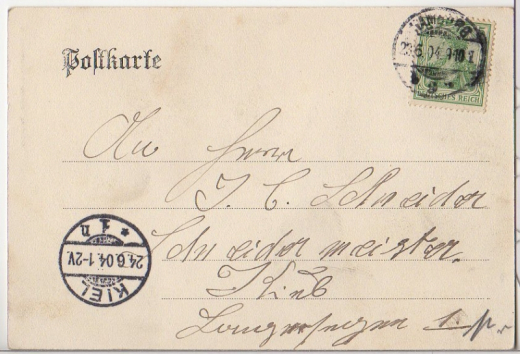 Postkarte
HAMBURG
23.6.04. 9-10 V.
DEUTSCHES REICH
An Herrn
J. C. Schneider
Schneidermeister.
Kiel
1. p.
KIEL
24.6.04.1-2V.
* 1 n